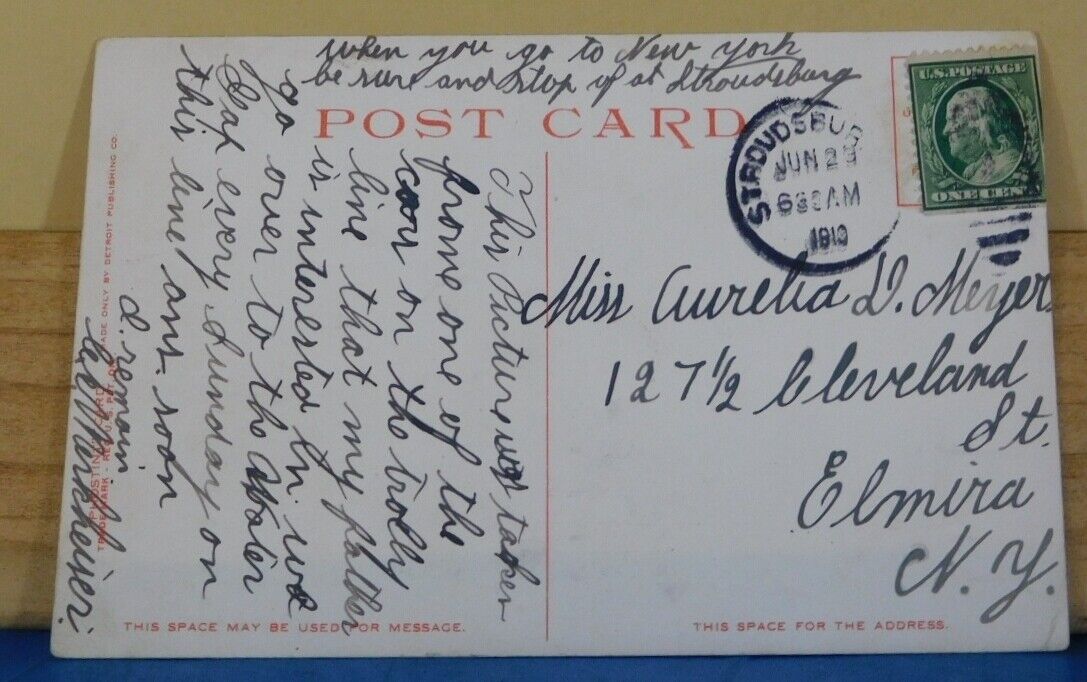 when you go to New York
be sure and stop of at Stroudsburg
POST CARD
U.S. POSTAGE
ONE CENT
STROUDSBUR
JUN 2
6 AM
Miss Aurelia D. Meyer
127 1/2 Cleveland
St.
Elmira
N.Y.
This Picture was taken
frome one of the
cars on the trolly
line that my father
is interested In. we
go over to the Water
Gap every Sunday on
this line, ans. soon
I remain
"PHOSTINT" CARD MADE ONLY BY DETROIT PUBLISHING CO.
TRADE MARK - REG. U.S. PAT. OFF.
THIS SPACE MAY BE USED FOR MESSAGE.
THIS SPACE FOR THE ADDRESS.